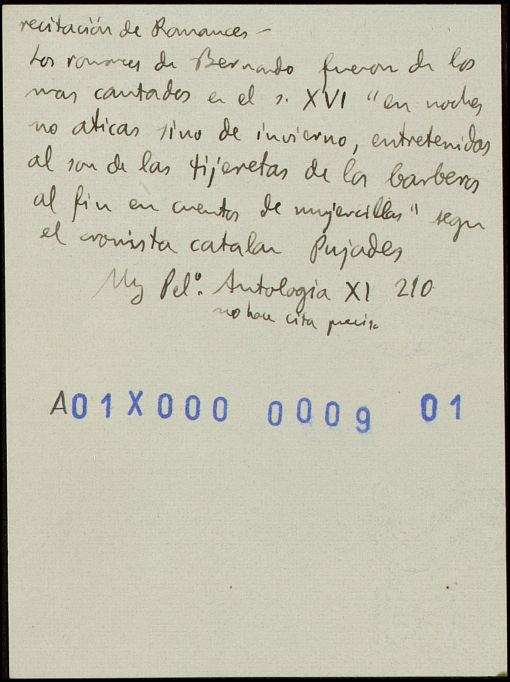 recitación de Romances —
Los romances de Bernardo fueron de los
mas cantados en el s. XVI "en noches
no aticas sino de invierno, entretenidas
al son de las tijeretas de los barberos
al fin en cuentos de mujercillas" segun
el cronista catalan Pujades
My Pelº. Antologia XI 210
no hace cita precisa
A01X000 0009 01